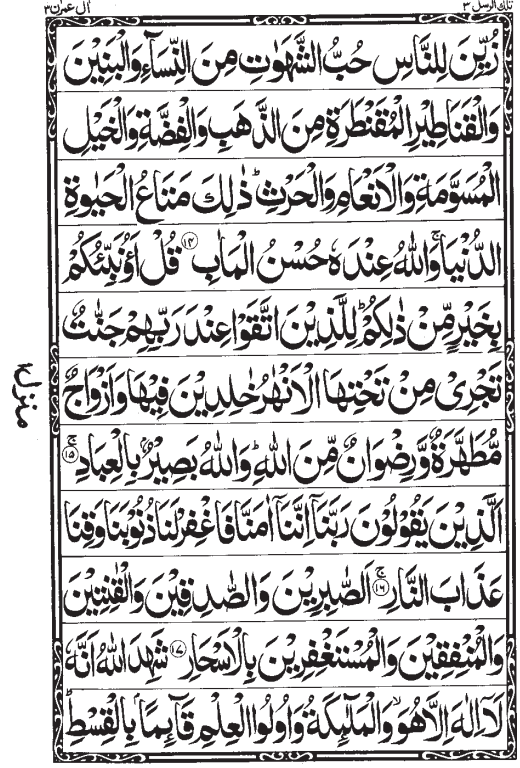 تلك الرسل ٣
اٰل عمرٰن ٣
زُيِّنَ لِلنَّاسِ حُبُّ الشَّهَوٰتِ مِنَ النِّسَآءِ وَالْبَنِيْنَ
وَالْقَنَاطِيْرِ الْمُقَنْطَرَةِ مِنَ الذَّهَبِ وَالْفِضَّةِ وَالْخَيْلِ
الْمُسَوَّمَةِ وَالْاَنْعَامِ وَالْحَرْثِ ؕ ذٰلِكَ مَتَاعُ الْحَيٰوةِ
الدُّنْيَا ۚ وَاللّٰهُ عِنْدَهٗ حُسْنُ الْمَاٰبِ ﴿۱۴﴾ قُلْ اَؤُنَبِّئُكُمْ
بِخَيْرٍ مِّنْ ذٰلِكُمْ ؕ لِلَّذِيْنَ اتَّقَوْا عِنْدَ رَبِّهِمْ جَنّٰتٌ
تَجْرِيْ مِنْ تَحْتِهَا الْاَنْهٰرُ خٰلِدِيْنَ فِيْهَا وَاَزْوَاجٌ
مُّطَهَّرَةٌ وَّرِضْوَانٌ مِّنَ اللّٰهِ ؕ وَاللّٰهُ بَصِيْرٌۢ بِالْعِبَادِ ﴿۱۵﴾ ۚ
اَلَّذِيْنَ يَقُوْلُوْنَ رَبَّنَآ اِنَّنَآ اٰمَنَّا فَاغْفِرْ لَنَا ذُنُوْبَنَا وَقِنَا
عَذَابَ النَّارِ ﴿۱۶﴾ ۚ اَلصّٰبِرِيْنَ وَالصّٰدِقِيْنَ وَالْقٰنِتِيْنَ
وَالْمُنْفِقِيْنَ وَالْمُسْتَغْفِرِيْنَ بِالْاَسْحَارِ ﴿۱۷﴾ شَهِدَ اللّٰهُ اَنَّهٗ
لَاۤ اِلٰهَ اِلَّا هُوَ ۙ وَالْمَلٰٓئِكَةُ وَاُولُوا الْعِلْمِ قَآئِمًۢا بِالْقِسْطِ ؕ
منزل ۱